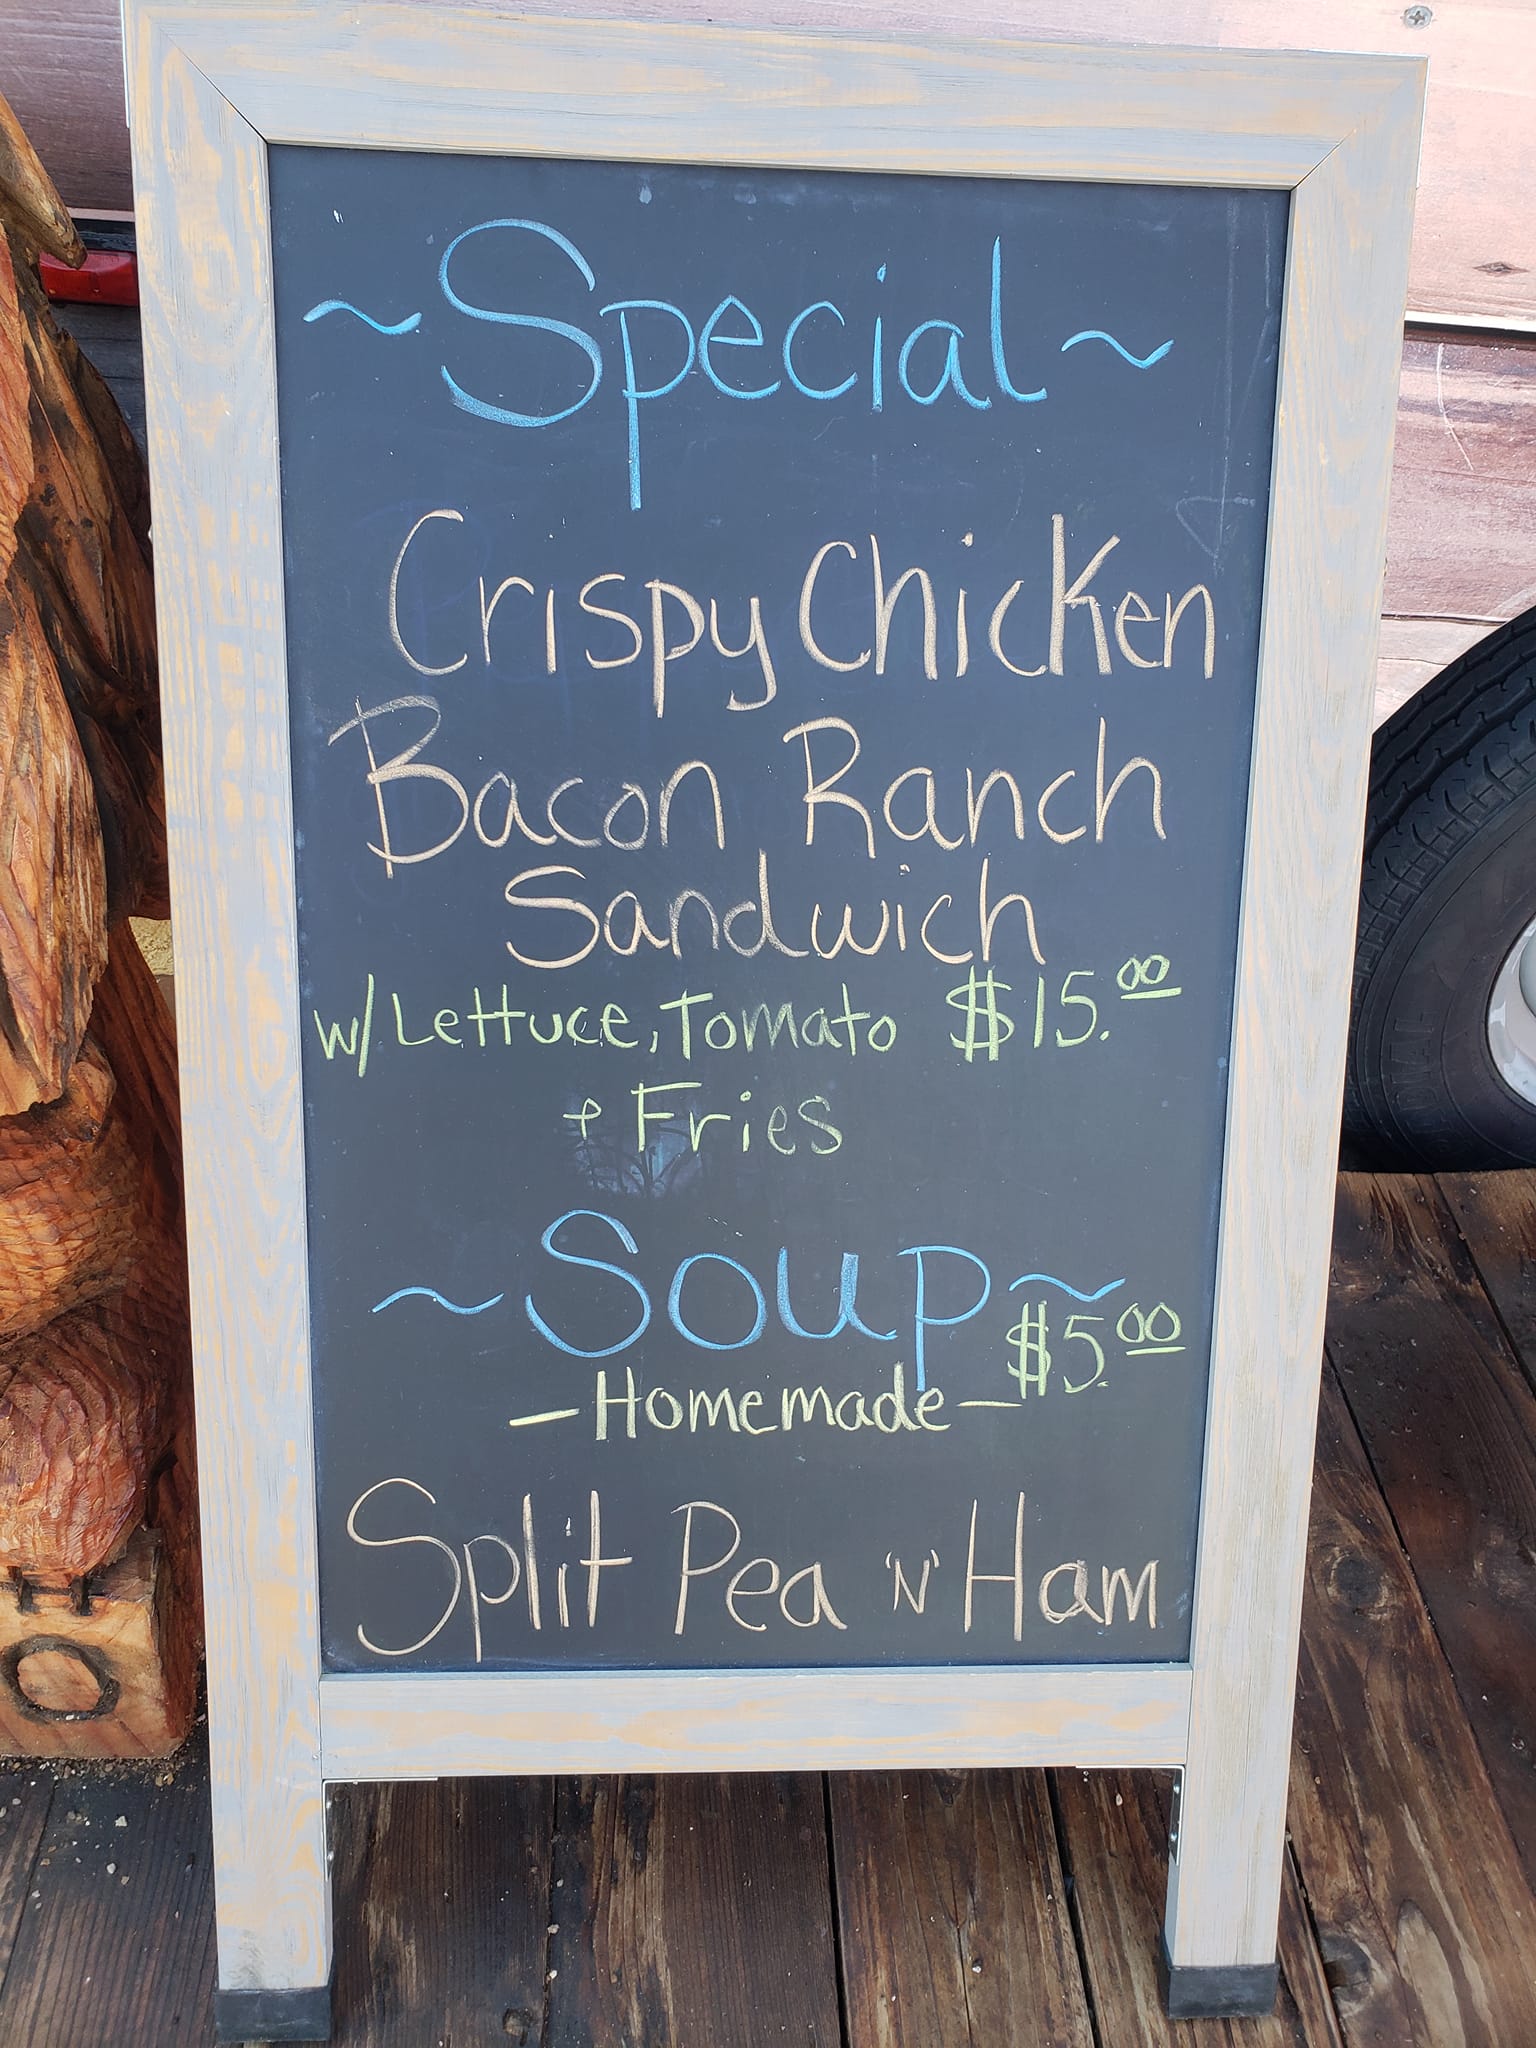 ~Special~
Crispy Chicken
Bacon Ranch
Sandwich
w/Lettuce, Tomato $15.00
+ Fries
~Soup~
$5.00
-Homemade-
Split Pea 'N' Ham